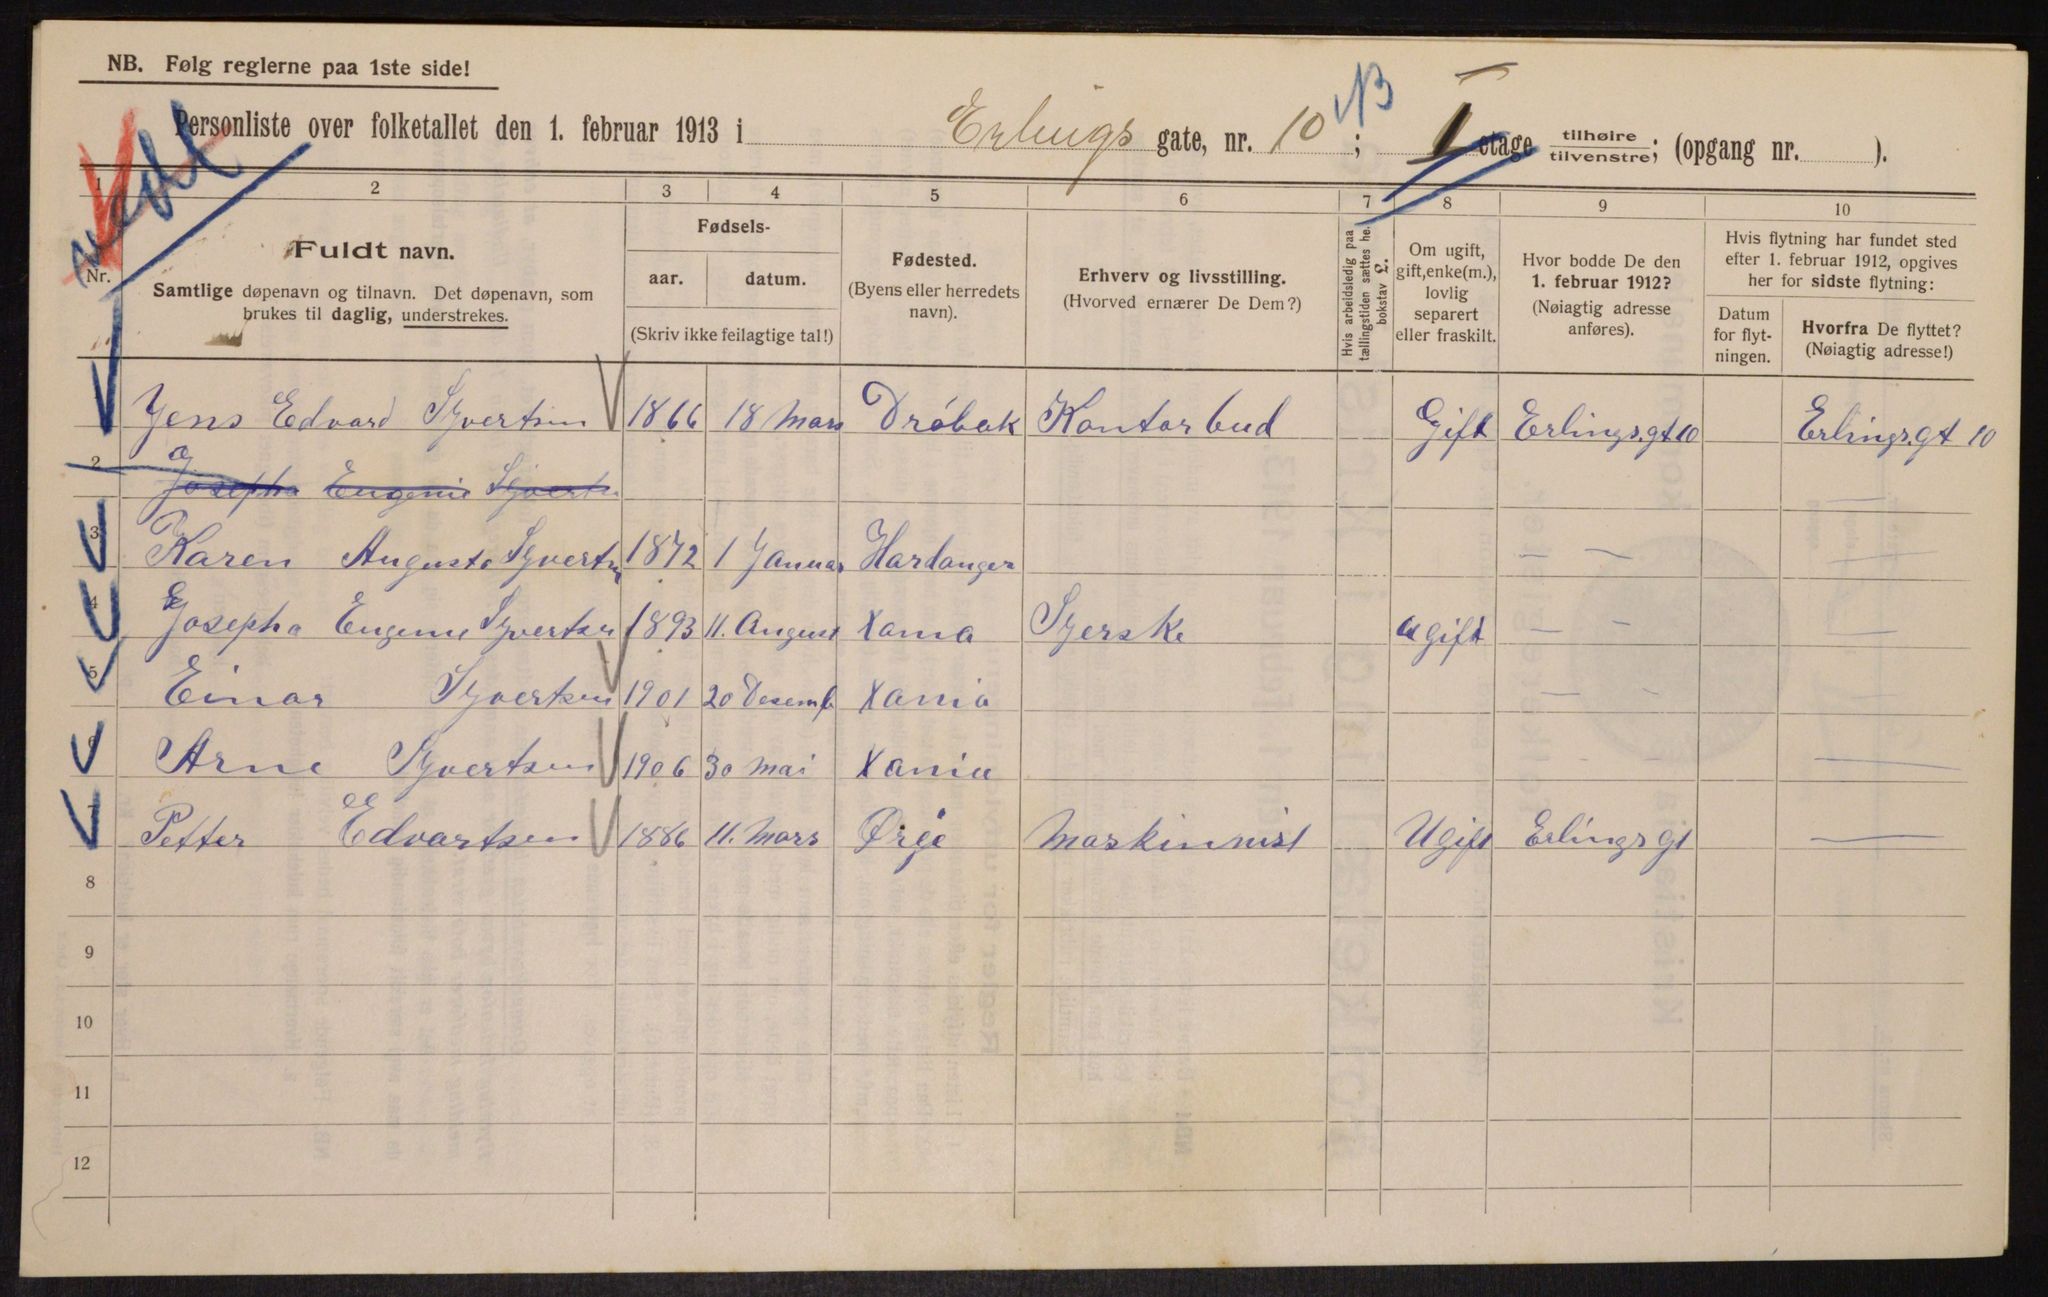 NB. Følg reglerne paa 1ste side!
Personliste over folketallet den 1. februar 1913 i Erlings gate, nr. 10 ; I etage tilhøire tilvenstre; (opgang nr. ).
1 2 3 4 5 6 7 8 9 10
Nr.
Fuldt navn.
Samtlige døpenavn og tilnavn. Det døpenavn, som
brukes til daglig, understrekes.
Fødsels-
aar. datum.
(Skriv ikke feilagtige tal!)
Fødested.
(Byens eller herredets
navn).
Erhverv og livsstilling.
(Hvorved ernærer De Dem?)
Hvis arbeidsledig paa
tællingstiden sættes her
bokstav £.
Om ugift,
gift, enke(m.),
lovlig
separert
eller fraskilt.
Hvor bodde De den
1. februar 1912?
(Nøiagtig adresse
anføres).
Hvis flytning har fundet sted
efter 1. februar 1912, opgives
her for sidste flytning:
Datum
for flyt-
ningen.
Hvorfra De flyttet?
(Nøiagtig adresse!)
Jens Edvard Syvertsen 1866 18 Mars Drøbak Kontorbud Gift Erlings.gt 10 Erlings.gt 10
2 Josepha Eugenie Syvertsen
3 Karen Augusta Syvertsen 1872 1 Januar Hardanger — —
4 Josepha Eugenie Syvertsen 1893 11. August Xania Syerske ugift — —
5 Einar Syvertsen 1901 20 Desemb Xania — —
6 Arne Syvertsen 1906 30 Mai Xania — —
7 Petter Edvartsen 1886 11. Mars Ørje Maskinnist Ugift Erlings gt —
8
9
10
11
12